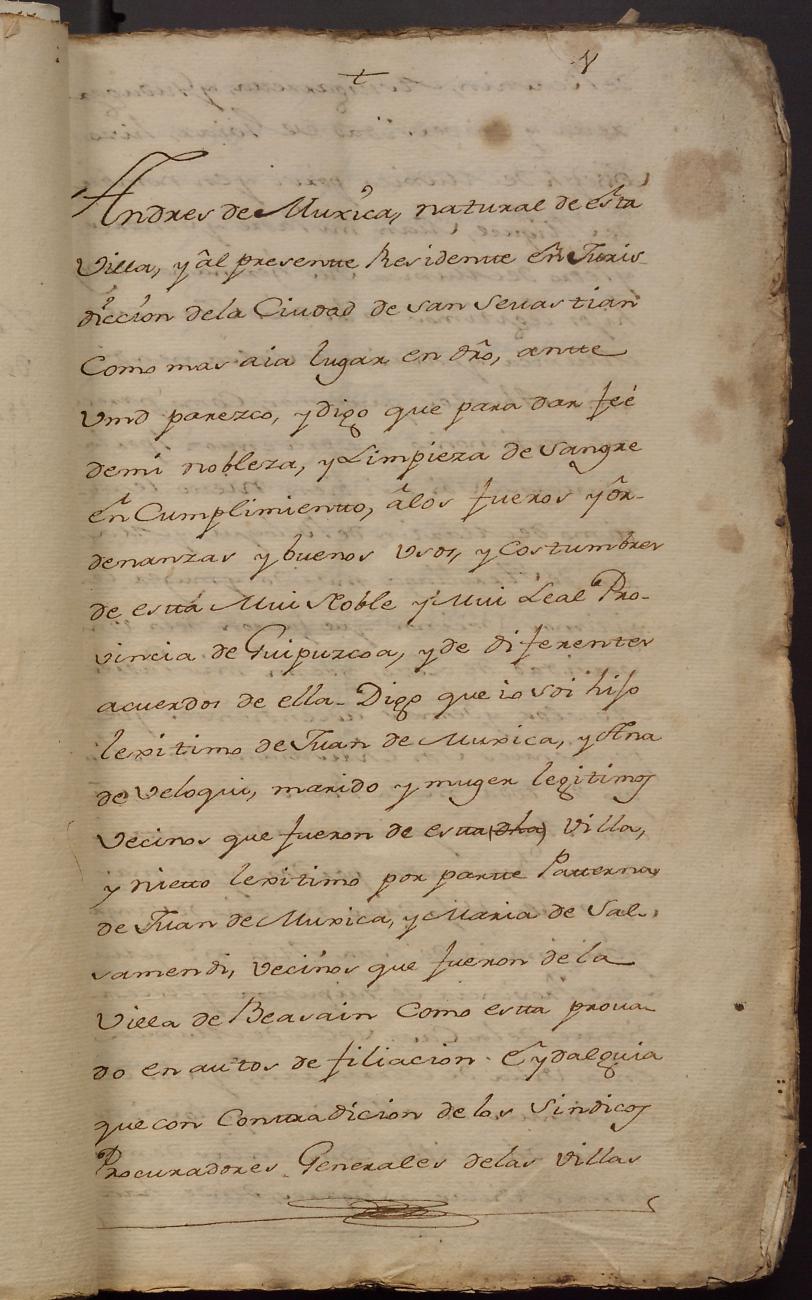 Andres de Muxica, natural de esta
Villa, y al presente Residente en Juris
diccion dela Ciudad de san Sevastian
Como mas aia lugar en dro, ante
Vmd parezco, y digo que para dar feé
demi nobleza, y Limpieza de sangre
en Cumplimientto, alos fueros y or-
denanzas y buenos Usos, y Costumbres
de estta Mui Noble y Mui Leal Pro-
vincia de Guipuzcoa, y de diferentes
acuerdos de ella. Digo que io soi hijo
lexitimo de Juan de Muxica, y Ana
de Veloqui, marido y muger legitimos
Vecinos que fueron de estta (dha) Villa,
y nietto lexitimo por partte Patterna
de Juan de Muxica, y Maria de Sal-
samendi, Vecinos que fueron de la
Villa de Beasain Como estta prova-
do en autos de filiacion. Eydalguia
que con Contradicion de los Sindicos
Procuradores Generales delas Villas